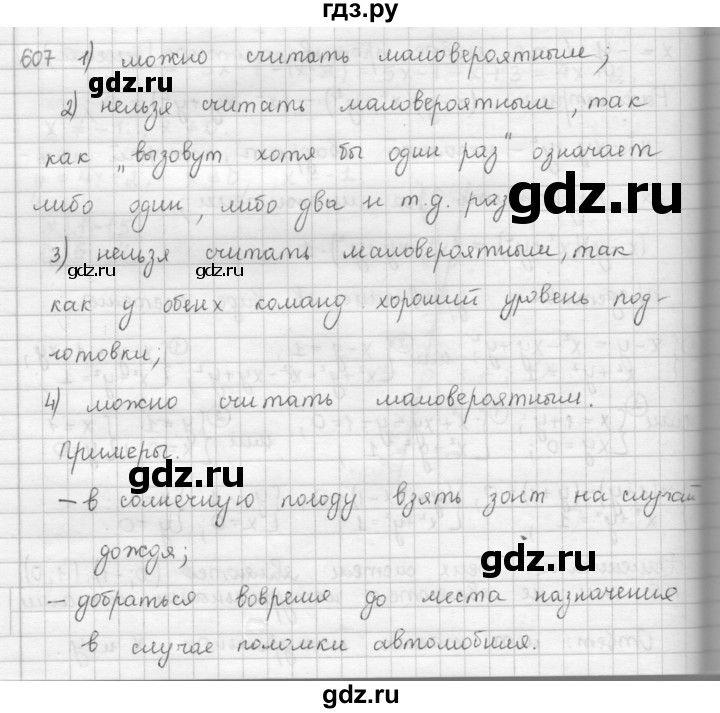 гдз.ру
607 1) можно считать маловероятным;
gdz.ru
2) нельзя считать маловероятным, так
как „вызовут хотя бы один раз" означает
либо один, либо два и т.д. раз
gdz.ru
3) нельзя считать маловероятным, так
gdz.ru gdz.ru
как у обеих команд хороший уровень под-
готовки;
4) можно считать маловероятным.
Примеры.
gdz.ru
– в солнечную погоду взять зонт на случай
дождя;
gdz.ru
– добраться вовремя до места назначения
в случае поломки автомобиля.
gdz.ru